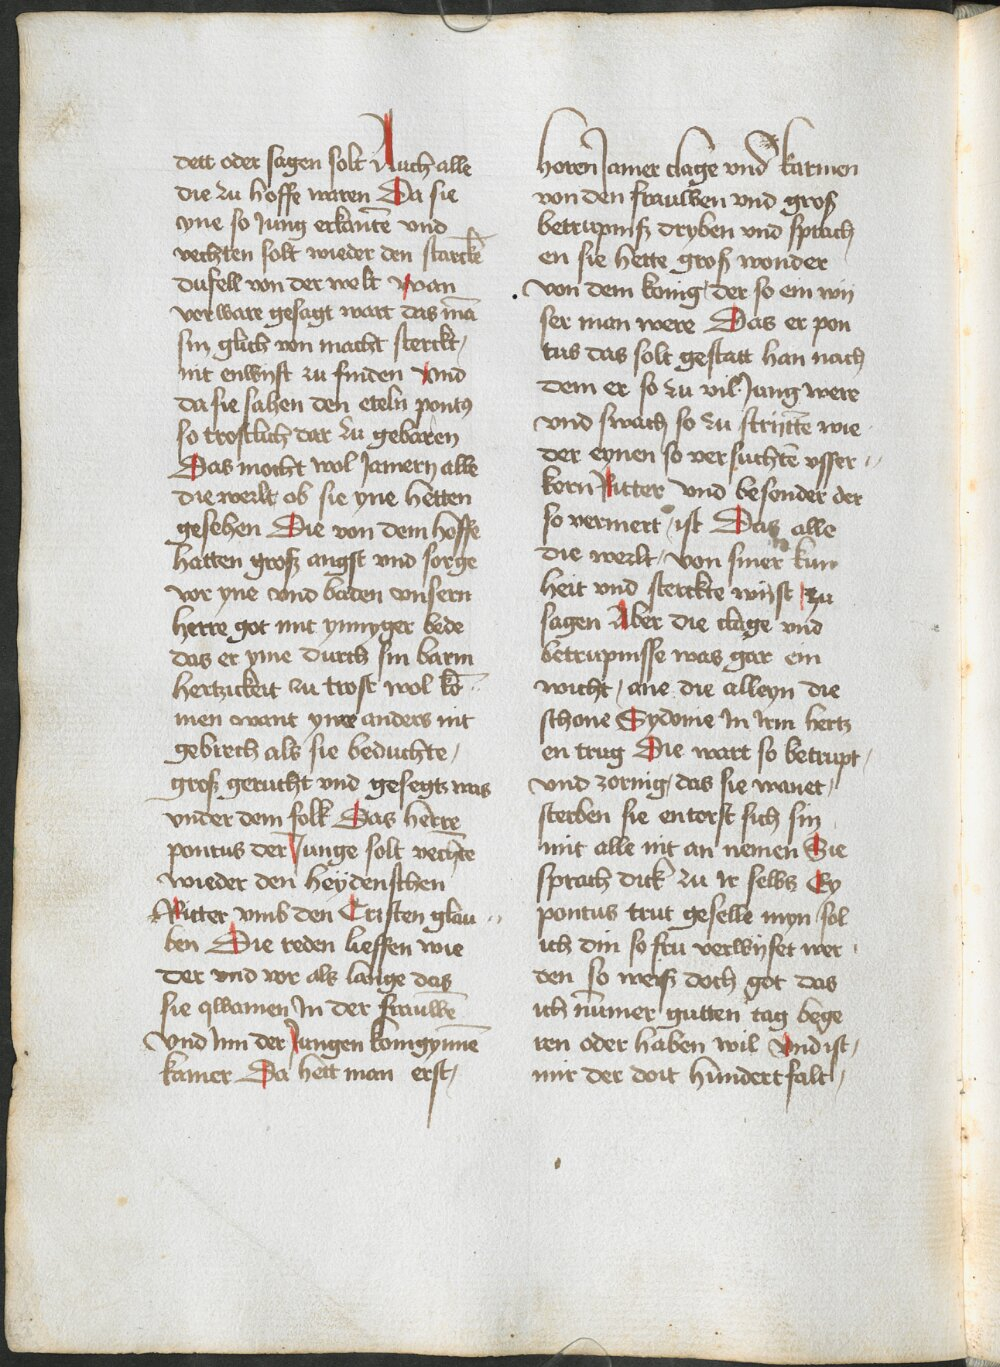 dett oder sagen solt Auch alle
die zu hoffe waren Da sie
yne so Jung erkantē vnd
vechten solt wieder den starckē
dufell von der welt wan
vorware gesagt wart das mā
sin glich von macht sterckt /
nit enwyst zu finden Vnd
da sie sahen den eteln pontꝰ
so trostlich dar zu gebaren
Das mocht wol Jamern alle
die werlt ob sie yne hetten
gesehen Die von dem hoffe
hatten groß angst vnd sorge
vor yne vnd baden vnsern
herre got mit ynnyger bede
das er yme durch sin barm
hertzickeit zu trost wol kō
men want yme anders nit
gebrech als sie beduchte /
groß gerucht vnd gesegts was
vnder dem folk Das herre
pontus der Junge solt vechtē
wieder den heydenschen
Ritter vmb den Cristen glau
ben Die reden lieffen wie
der vnd vor als lange das
sie qwamen In der frauwē
vnd Inn der Jungen konigynnē
kamer Da hett man erst /
horen Jamer clage vnd karmen
von den frauwen vnd groß
betrupniß dryben vnd sprach
en sie hette groß wonder
von dem konig / der so ein wij
ser man were Das er pon
tus das solt gestatt han nach
dem er so zu vil Jung were
vnd swach so zu strijttē wie
der eynen so versuchtē vsser
korn Ritter vnd besonder der
so vermert / ist Das alle
die werlt / von siner kun
heit vnd sterckte wijst / zu
sagen Aber die clage vnd
betrupnisse was gar ein
wicht / ane die alleyn die
schone Sydonie In Irm hertz
en trug Die wart so betrupt /
vnd zornig / das sie wanet /
sterben sie entorst sich sin
mit alle nit an nemen Sie
sprach dick zu Ir selbs Ey
pontus trut geselle myn / sol
ich din so fru verwyset wer
den so weiß doch got das
ich nūmer gutten tag bege
ren oder haben wil Vnd ist /
mir der doit hundertfalt /